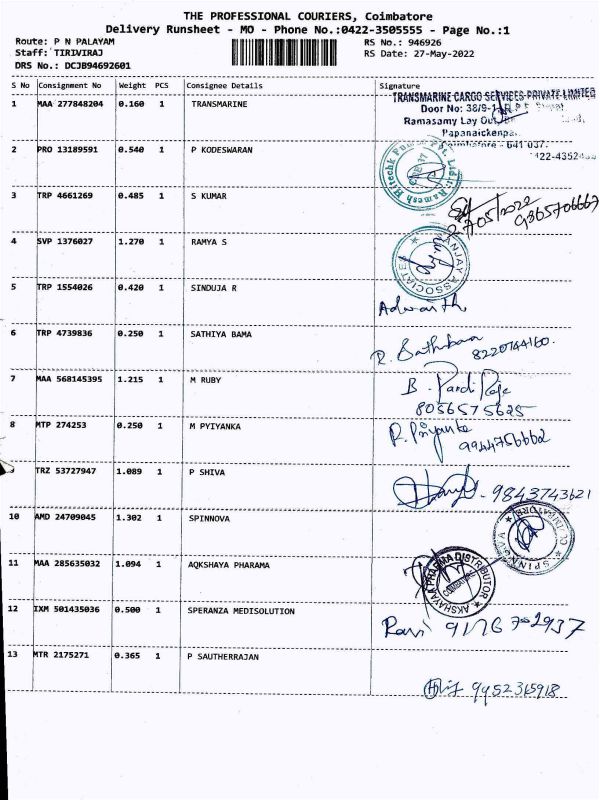 THE PROFESSIONAL COURIERS, Coimbatore
Delivery Runsheet - MO - Phone No.:0422-3505555 - Page No.:1
Route: P N PALAYAM
Staff: TIRIVIRAJ
DRS No.: DCJB94692601
RS No.: 946926
RS Date: 27-May-2022
S No Consignment No Weight PCS Consignee Details Signature
1 MAA 277848204 0.160 1 TRANSMARINE
TRANSMARINE CARGO SERVICES PRIVATE LIMITED
Door No: 38/9-1
Ramasamy Lay Out
Papanaickenpa
Coimbatore - 641 037.
2 PRO 13189591 0.540 1 P KODESWARAN
Ramesh Hitechk Pvt. Ltd.
3 TRP 4661269 0.485 1 S KUMAR
27/05/2022
9365706667
4 SVP 1376027 1.270 1 RAMYA S
ANJAY ASSOCIATE
5 TRP 1554026 0.420 1 SINDUJA R
Adwaith
6 TRP 4739836 0.250 1 SATHIYA BAMA
8220744160.
7 MAA 568145395 1.215 1 M RUBY
B. Pandi Raja
8056575625
8 MTP 274253 0.250 1 M PYIYANKA
R. Priyanka
9944756662
9 TRZ 53727947 1.089 1 P SHIVA
9843743621
10 AMD 24709045 1.302 1 SPINNOVA
SPINNOVA COIMBATORE
11 MAA 285635032 1.094 1 AQKSHAYA PHARAMA
AKSHAYAA PHARMA DISTRIBUTOR
12 IXM 501435036 0.500 1 SPERANZA MEDISOLUTION
Ravi 9176702937
13 MTR 2175271 0.365 1 P SAUTHERRAJAN
9952365918